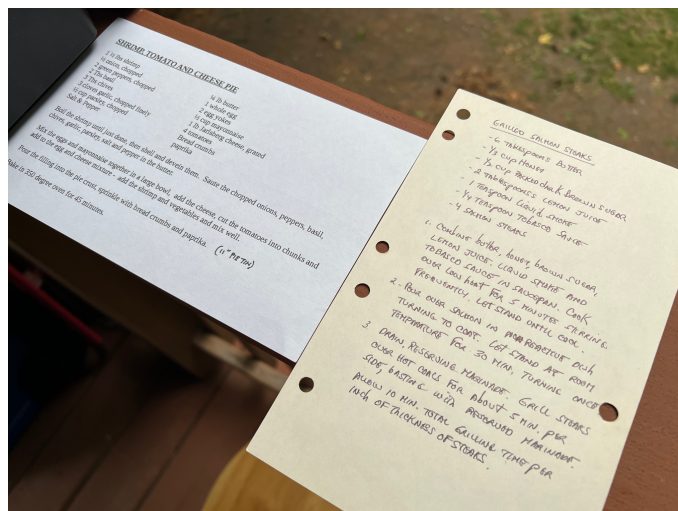 SHRIMP, TOMATO AND CHEESE PIE
1 ½ lbs shrimp
½ onion, chopped
2 green peppers, chopped
2 Tbs basil
3 Tbs chives
3 cloves garlic, chopped finely
½ cup parsley, chopped
Salt & Pepper
¼ lb butter
1 whole egg
2 egg yokes
cup mayonnaise
1 lb Jarlsberg cheese, grated
4 tomatoes
Bread crumbs
paprika
Boil the shrimp until just done, then shell and devein them. Saute the chopped onions, peppers, basil,
chives, garlic, parsley, salt and pepper in the butter.
Mix the eggs and mayonnaise together in a large bowl, add the cheese, cut the tomatoes into chunks and
add to the egg and cheese mixture - add the shrimp and vegetables and mix well.
Pour the filling into the pie crust, sprinkle with bread crumbs and paprika. (11" PIE TIN)
Bake in 350 degree oven for 45 minutes.
GRILLED SALMON STEAKS
- 6 TABLESPOONS BUTTER
- ⅓ CUP HONEY
- ⅓ CUP PACKED dark BROWN SUGAR
- 2 TABLESPOONS LEMON JUICE
- 1 TEASPOON Liquid SMOKE
- ¼ TEASPOON TOBASCO SAUCE
- 4 SALMON STEAKS
1. COMBINE buTTER, honey, bROWN SUGAR,
LEMON JUICE, LIQUID SMOKE AND
TOBASCO SAUCE IN SAUCEPAN. Cook
OVER LOW hEAT FOR 5 MINUTES STIRRING
FREQUENTLY. LET STAND UNTIL COOL.
2. POUR OVER SALMON IN DISH
TURNING TO COAT. LET STAND AT ROOM
TEMPERATURE FOR 30 MIN. TURNING ONCE
3 DRAIN, RESERVING MARINADE. GRILL STEAKS
OVER HOT COALS FOR About 5 MIN. PER
SIDE, bASTING WITH RESERVED MARINADE.
ALLOW 10 MIN. TOTAL GRILLING TIME PER
INCH OF THICKNESS OF STEAKS.